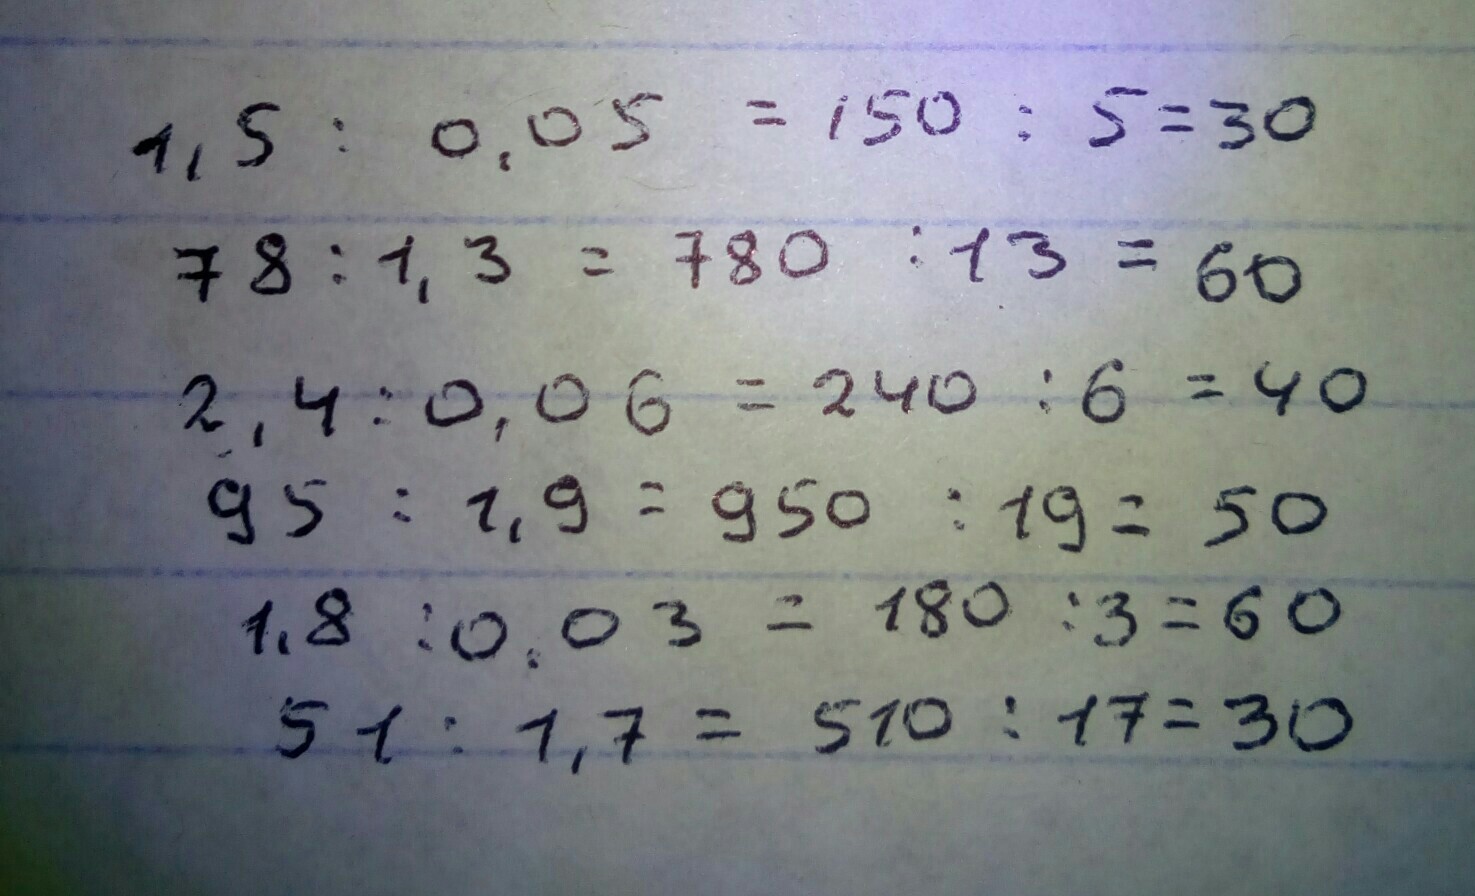 1,5 : 0,05 = 150 : 5 = 30
78 : 1,3 = 780 : 13 = 60
2,4 : 0,06 = 240 : 6 = 40
95 : 1,9 = 950 : 19 = 50
1,8 : 0,03 = 180 : 3 = 60
51 : 1,7 = 510 : 17 = 30